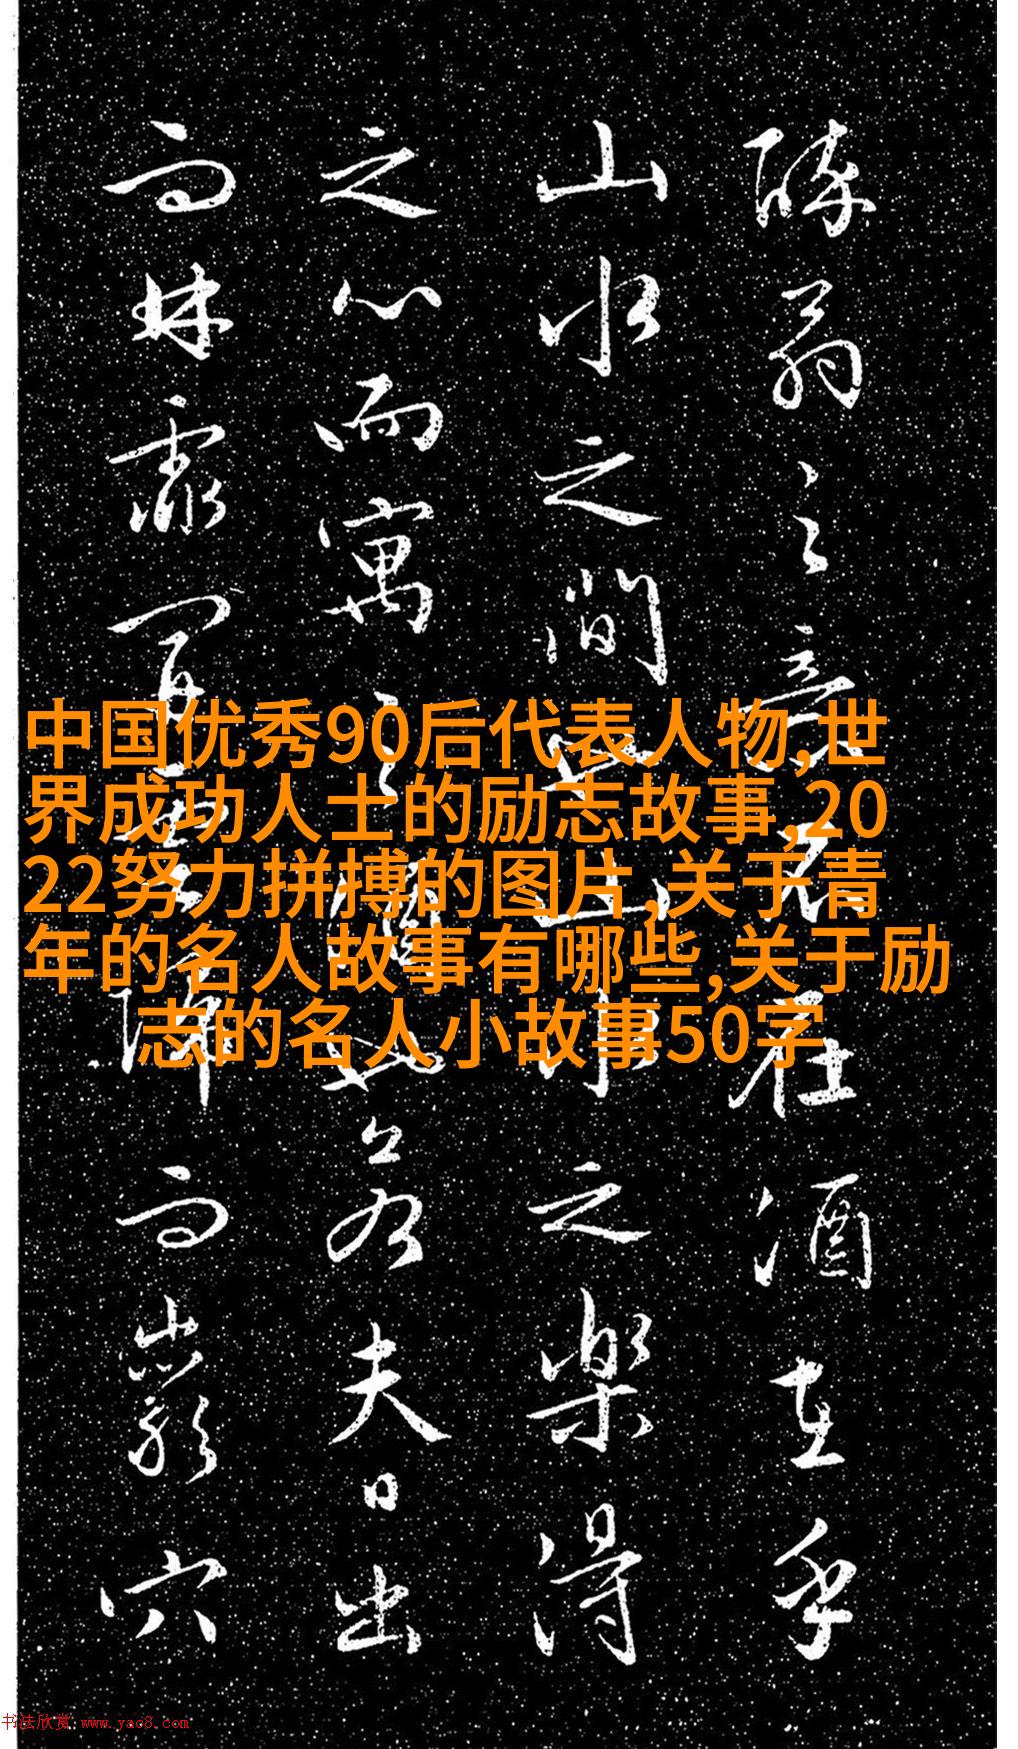 醉翁之意不在酒在乎
山水之間也山水之樂得
之心而寓之酒也若夫日出
而林霏開雲歸而巖穴
中国优秀90后代表人物,世
界成功人士的励志故事,20
22努力拼搏的图片,关于青
年的名人故事有哪些,关于励
志的名人小故事50字
书法欣赏 www.yac8.com